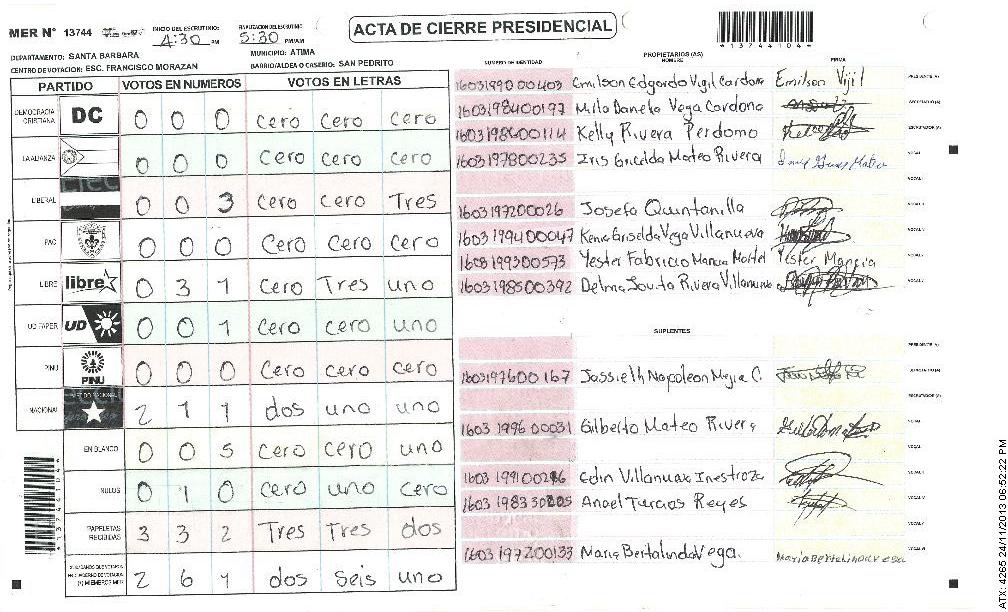 MER N° 13744
INICIO DEL ESCRUTINIO: 4:30 PM
FINALIZACION DEL ESCRUTINIO 5:30 PM/AM
ACTA DE CIERRE PRESIDENCIAL
*13744104*
DEPARTAMENTO: SANTA BARBARA
MUNICIPIO: ATIMA
CENTRO DE VOTACION: ESC. FRANCISCO MORAZAN
BARRIO/ALDEA O CASERIO: SAN PEDRITO
PARTIDO VOTOS EN NUMEROS VOTOS EN LETRAS
DEMOCRACIA CRISTIANA DC 0 0 0 cero cero cero
LA ALIANZA 0 0 0 cero cero cero
LIBERAL 0 0 3 cero cero Tres
PAC 0 0 0 cero cero cero
LIBRE libre 0 3 1 cero Tres uno
UD FAPER UD 0 0 1 cero cero uno
PINU PINU 0 0 0 cero cero cero
NACIONAL 2 1 1 dos uno uno
EN BLANCO 0 0 5 cero cero uno
NULOS 0 1 0 cero uno cero
PAPELETAS RECIBIDAS 3 3 2 Tres Tres dos
2 6 1 dos seis uno
NUMERO DE IDENTIDAD PROPIETARIOS (AS) NOMBRE FIRMA
1603199000403 Emilson Edgardo Vigil Cardona Emilson Vijil PRESIDENTE (A)
1603198400197 Vega Cardona SECRETARIO (A)
1603198600114 Kelly Rivera Perdomo ESCRUTADOR (A)
1603197800235 Iris Griselda Mateo Rivera VOCAL I
1603197200026 Josefa Quintanilla
1603199400047 Kenia Griselda Vega Villanueva
1608199300573 Yester Fabricio Mancia Yester Mancia
1603198500392 Rivera Villanueva
SUPLENTES
PRESIDENTE (A)
1603197600167 Jassieth Napoleon Mejia C. SECRETARIO (A)
ESCRUTADOR (A)
1603199600031 Gilberto Mateo Rivera
Edin Villanueva Inestroza
Angel Turcios Reyes
1603197200133 Maria Bertalinda Vega.
*13744104*
ATX: 4265 24/11/2013 06:52:22 PM